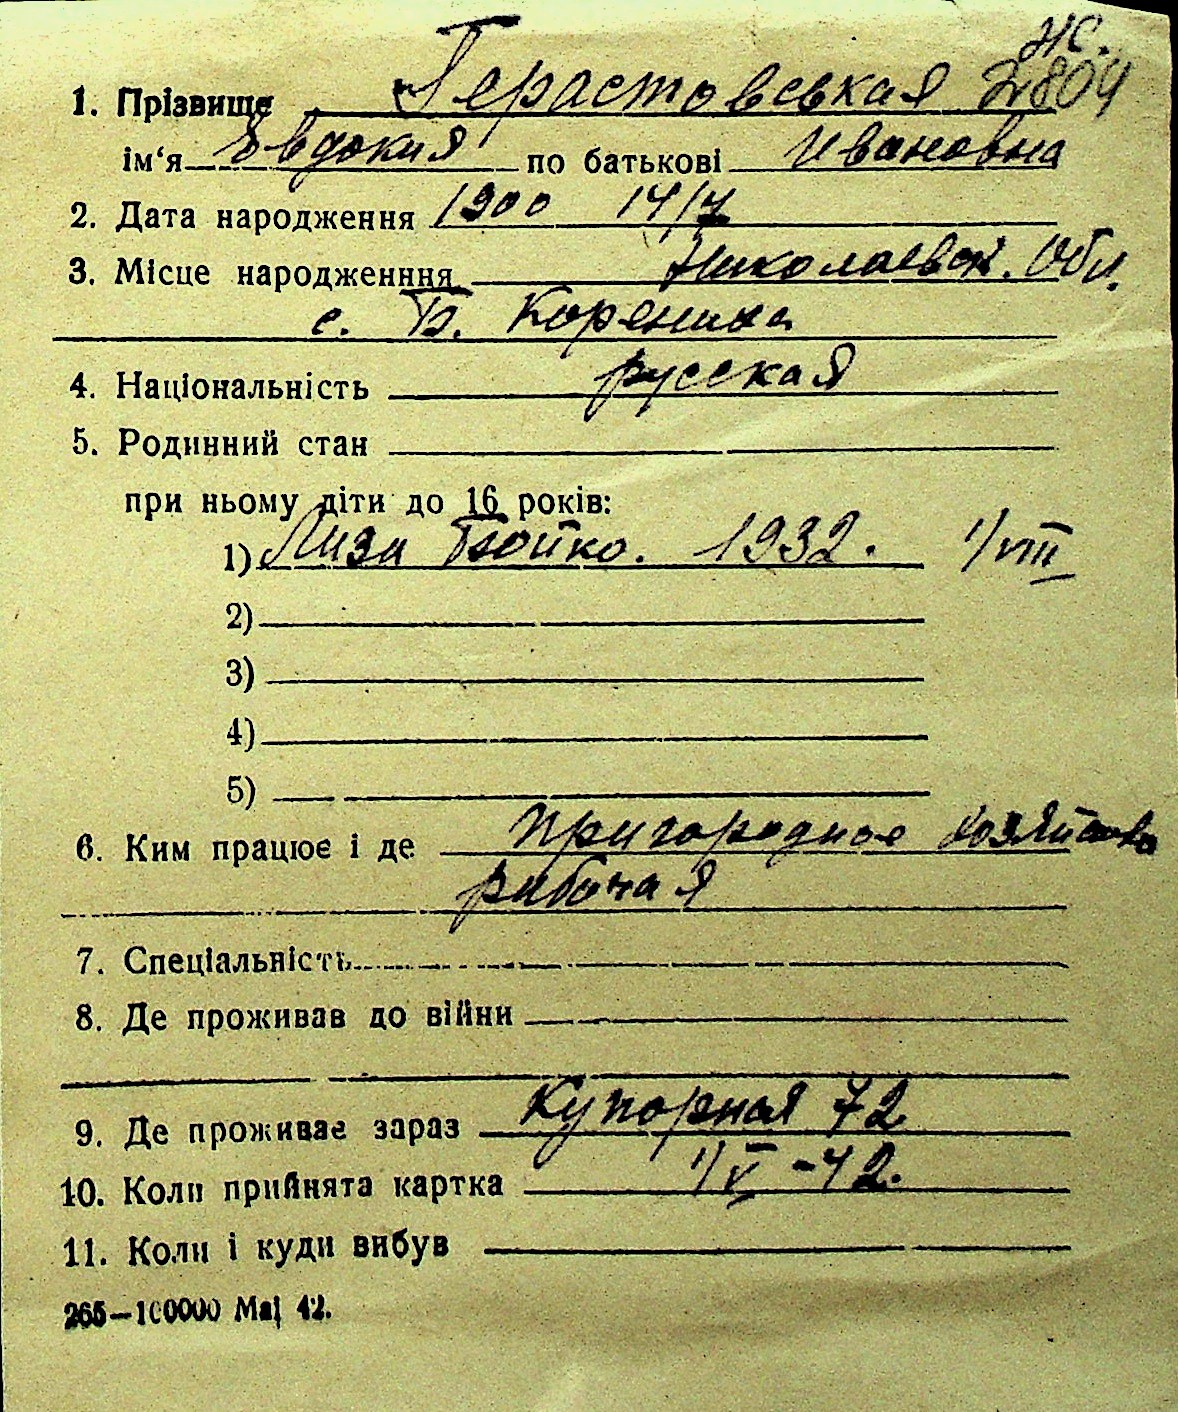 Ж.
1. Прізвище Герастовськая 2804
ім‘я Евдокия по батькові Ивановна
2. Дата народження 1900 14/7
3. Місце народженння Николаевой. Обл.
с. Б. Корениха
4. Національність русская
5. Родинний стан
при ньому діти до 16 років:
1) Лиза Бойко. 1932. 1/VIII
2)
3)
4)
5)
6. Ким працює і де Пригородное хозяйство
рабочая
7. Спеціальність
8. Де проживав до війни
9. Де проживає зараз Купорная 72
10. Коли прийнята картка 1/V -42.
11. Коли і куди вибув
265—100000 Маj 42.